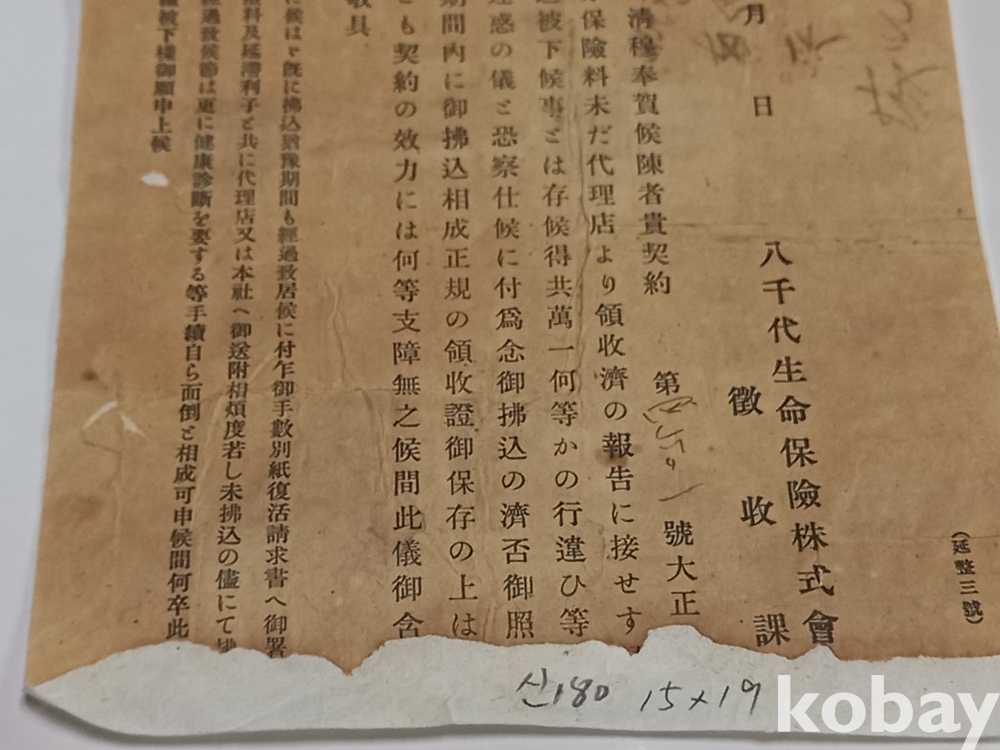 (延整三號)
月 日
八千代生命保險株式會
徵收課
第 號大正
淸穆奉賀候陳者貴契約
保險料未だ代理店より領收濟の報告に接せす
被下候事とは存候得共萬一何等かの行違ひ等
惑の儀と恐察仕候に付爲念御拂込の濟否御照
期間內に御拂込相成正規の領收證御保存の上は
も契約の效力には何等支障無之候間此儀御含
敬具
候はゞ旣に拂込猶豫期間も經過致居候に付乍御手數別紙復活請求書へ御署
料及延滯利子と共に代理店又は本社へ御送附相煩度若し未拂込の儘にて
經過致候節は更に健康診斷を要する等手續自ら面倒と相成可申候間何卒此
被下樣御願申上候
산180 15×19
kobay